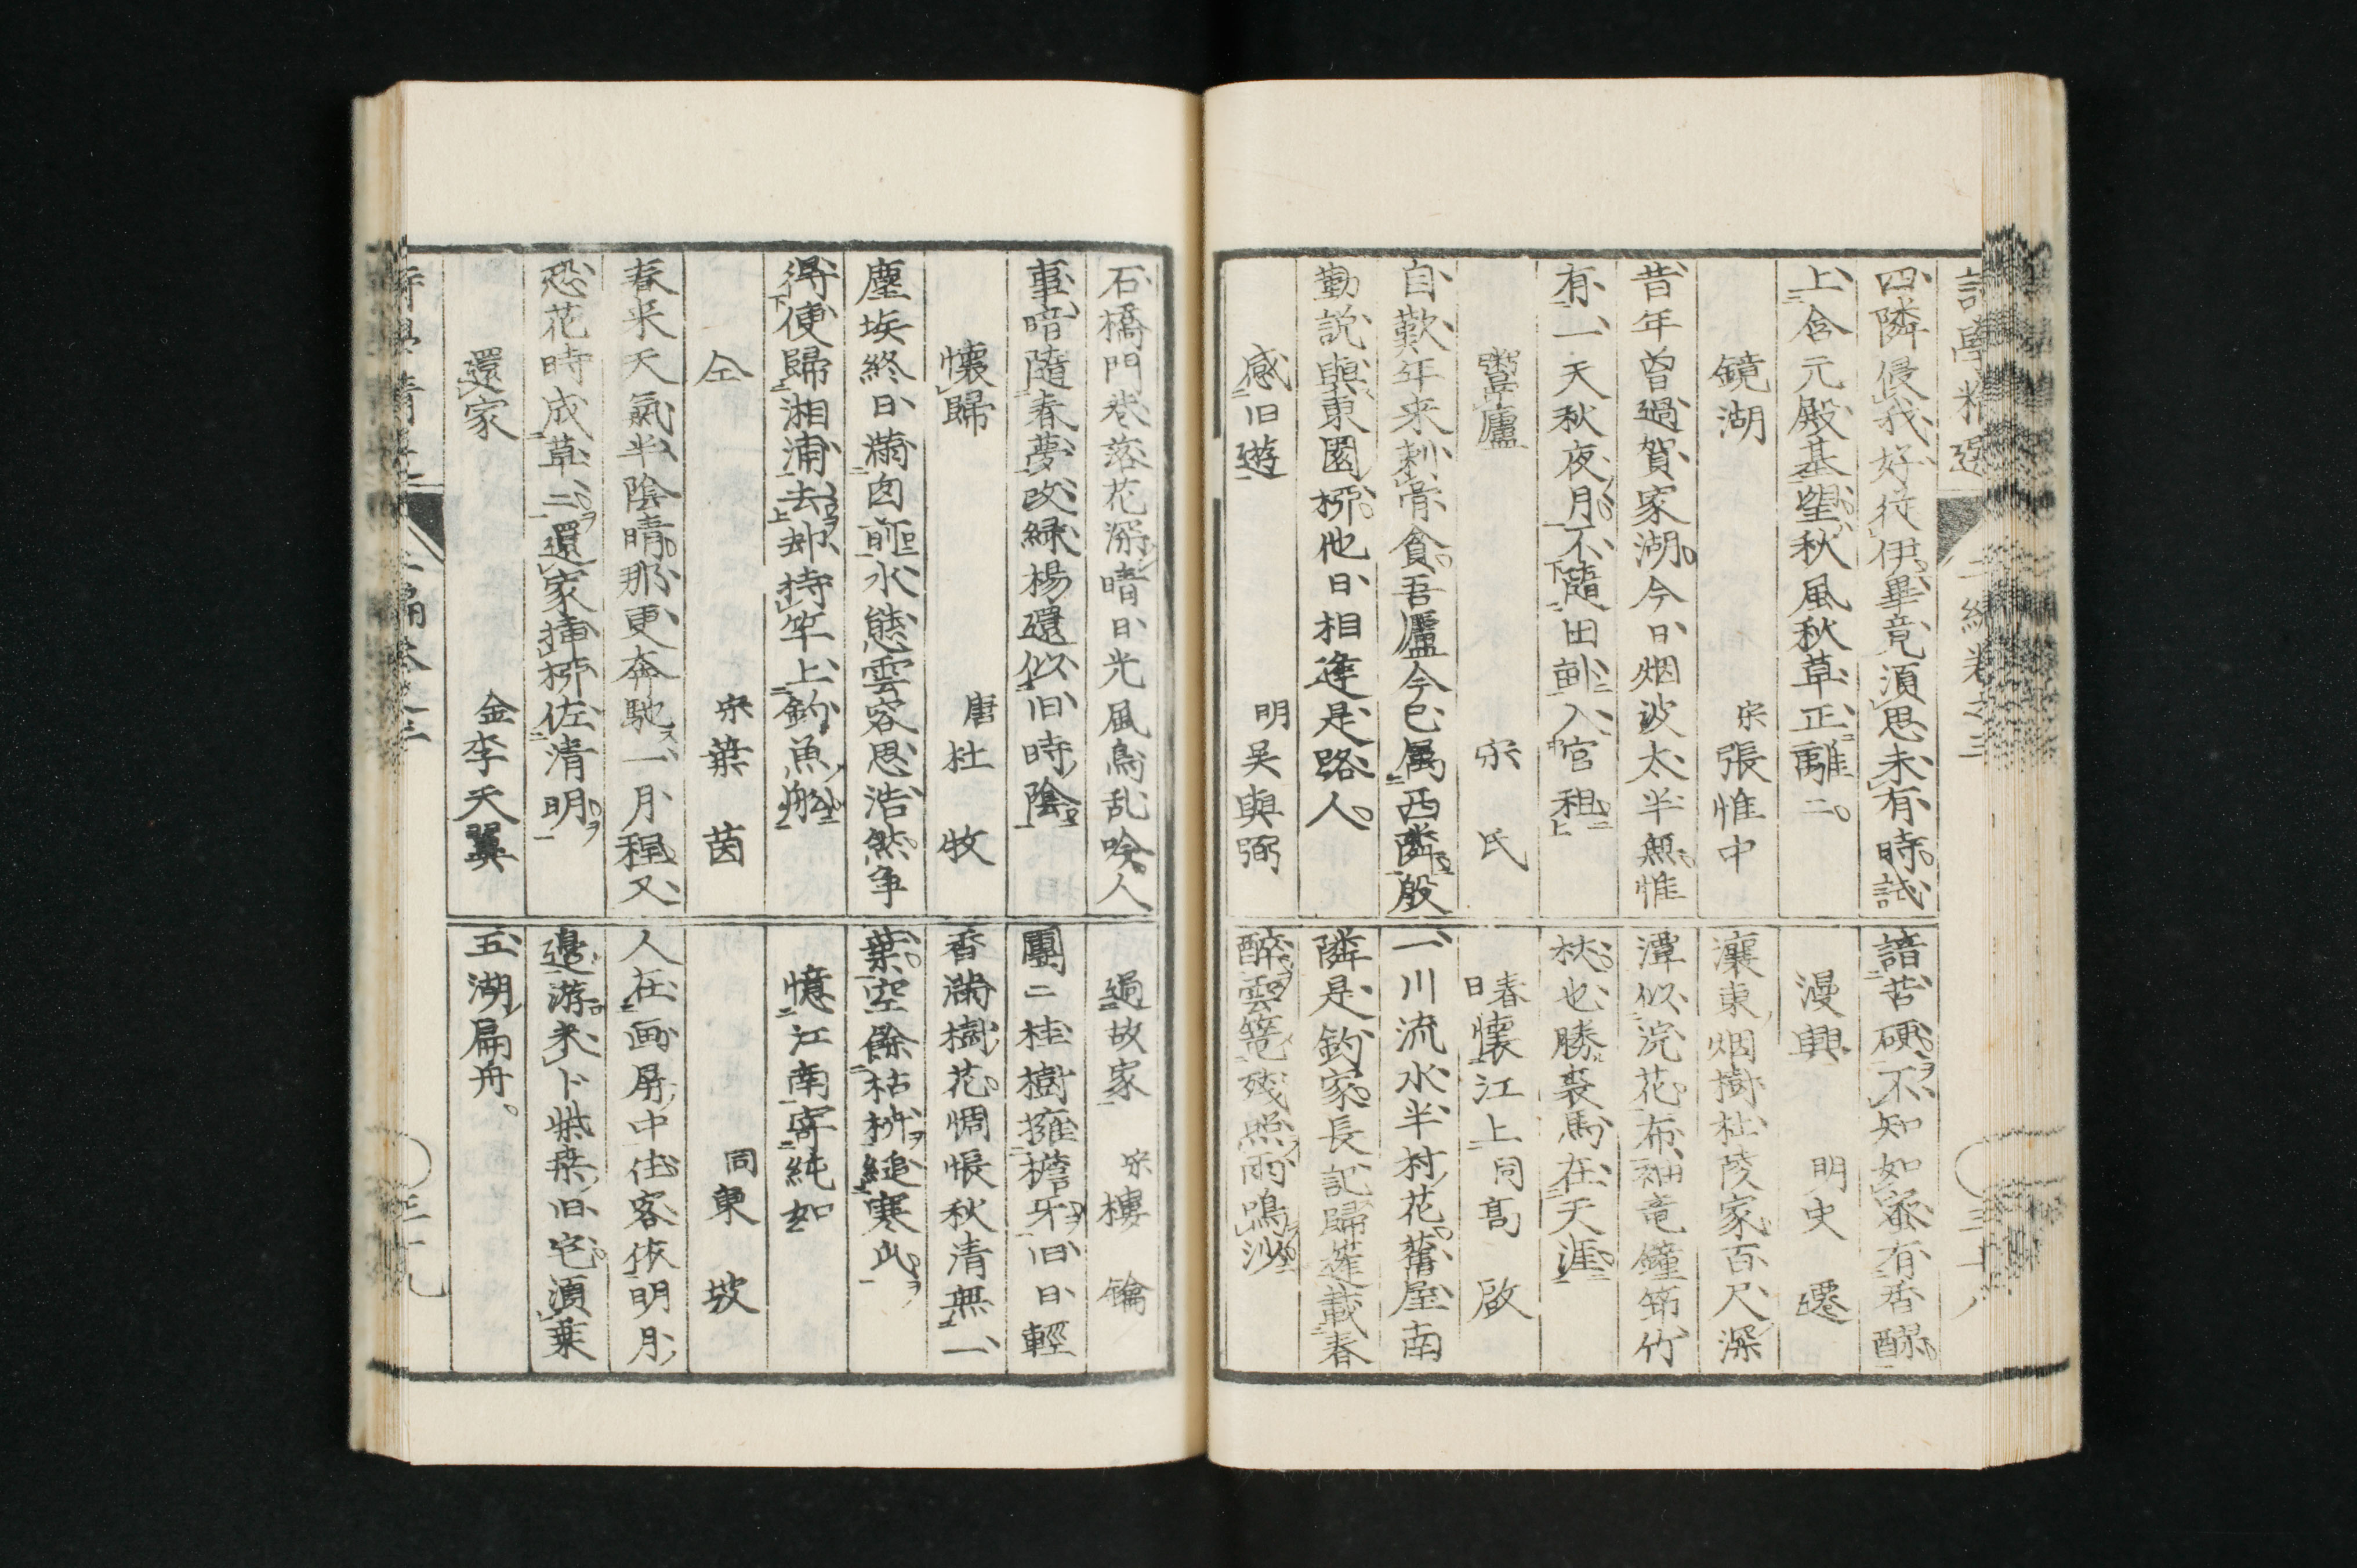 四隣侵我好従伊畢竟須思未有時試
上含元殿基望秋風秋草正離二
鏡湖　宋張惟中
昔年曽過賀家湖今日烟波太半無惟
有一天秋夜月不隨田畝入官租
鬻廬　宋　氏
自歎年来刺骨貧吾廬今已属西隣殷
勤説與東園栁他日相逢是路人
感旧遊　明吴與弼
石橋門巷落花深晴日光風鳥乱吟人
事暗隨春夢改緑楊還似旧時陰
懐歸　唐杜　牧
塵埃終日満囱前水態雲容思浩然争
得便歸湘浦去却持竿上釣魚船
仝　宋葉　茵
春来天氣半陰晴那更奔馳一月程又
恐花時成草二還家挿栁佐清明
還家　金李天翼
諳苦硬不知如蜜有香醪
漫興　明史　遷
瀼東烟樹杜陵家百尺深
潭似浣花布袖竜鐘筇竹
杖也勝裘馬在天涯
春日懐江上同髙　啟
一川流水半村花舊屋南
隣是釣家長記歸蓬載春
醉雲篷残照雨鳴沙
過故家　宋樓　鑰
團二桂樹擁檐牙旧日輕
香満樹花惆悵秋清無一
葉空餘枯枿縋寒
憶江南寄純如
同東　坡
人在画屏中住客依明月
邉游未卜柴桑旧宅須乗
五湖扁舟